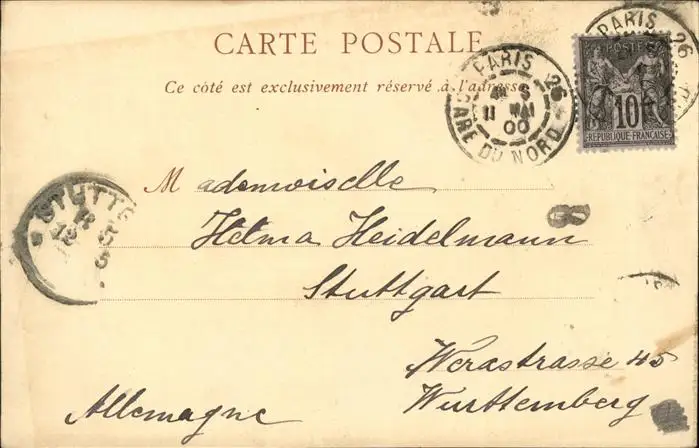 CARTE POSTALE
Ce côté est exclusivement réservé à l'adresse
PARIS 26
GARE DU NORD
11 MAI
00
PARIS 26
POSTE
10
REPUBLIQUE FRANÇAISE
STUTTG
12
5
8
Mademoiselle
Helma Heidelmann
Stuttgart
Werastrasse 45
Wurttemberg
Allemagne